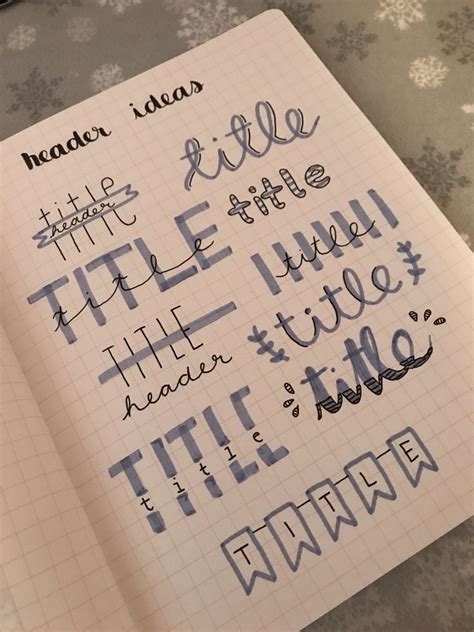 header ideas
title
title
header
title
TITLE
title
title
TITLE
header
title
title
TITLE
title
TITLE